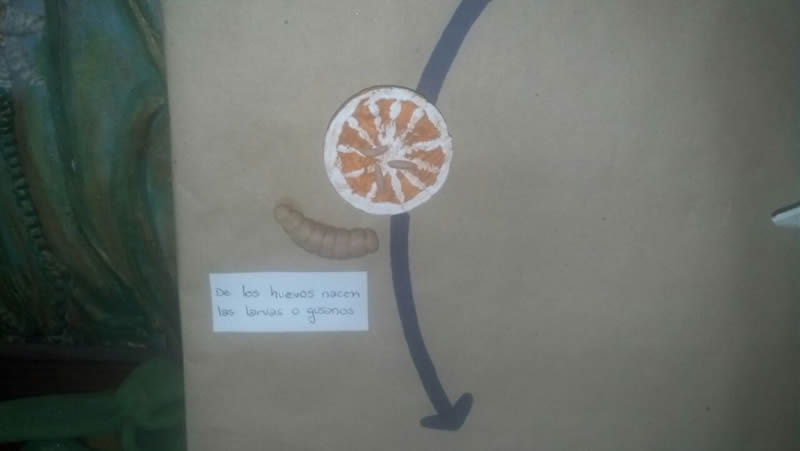 De los huevos nacen
las larvas o gusanos